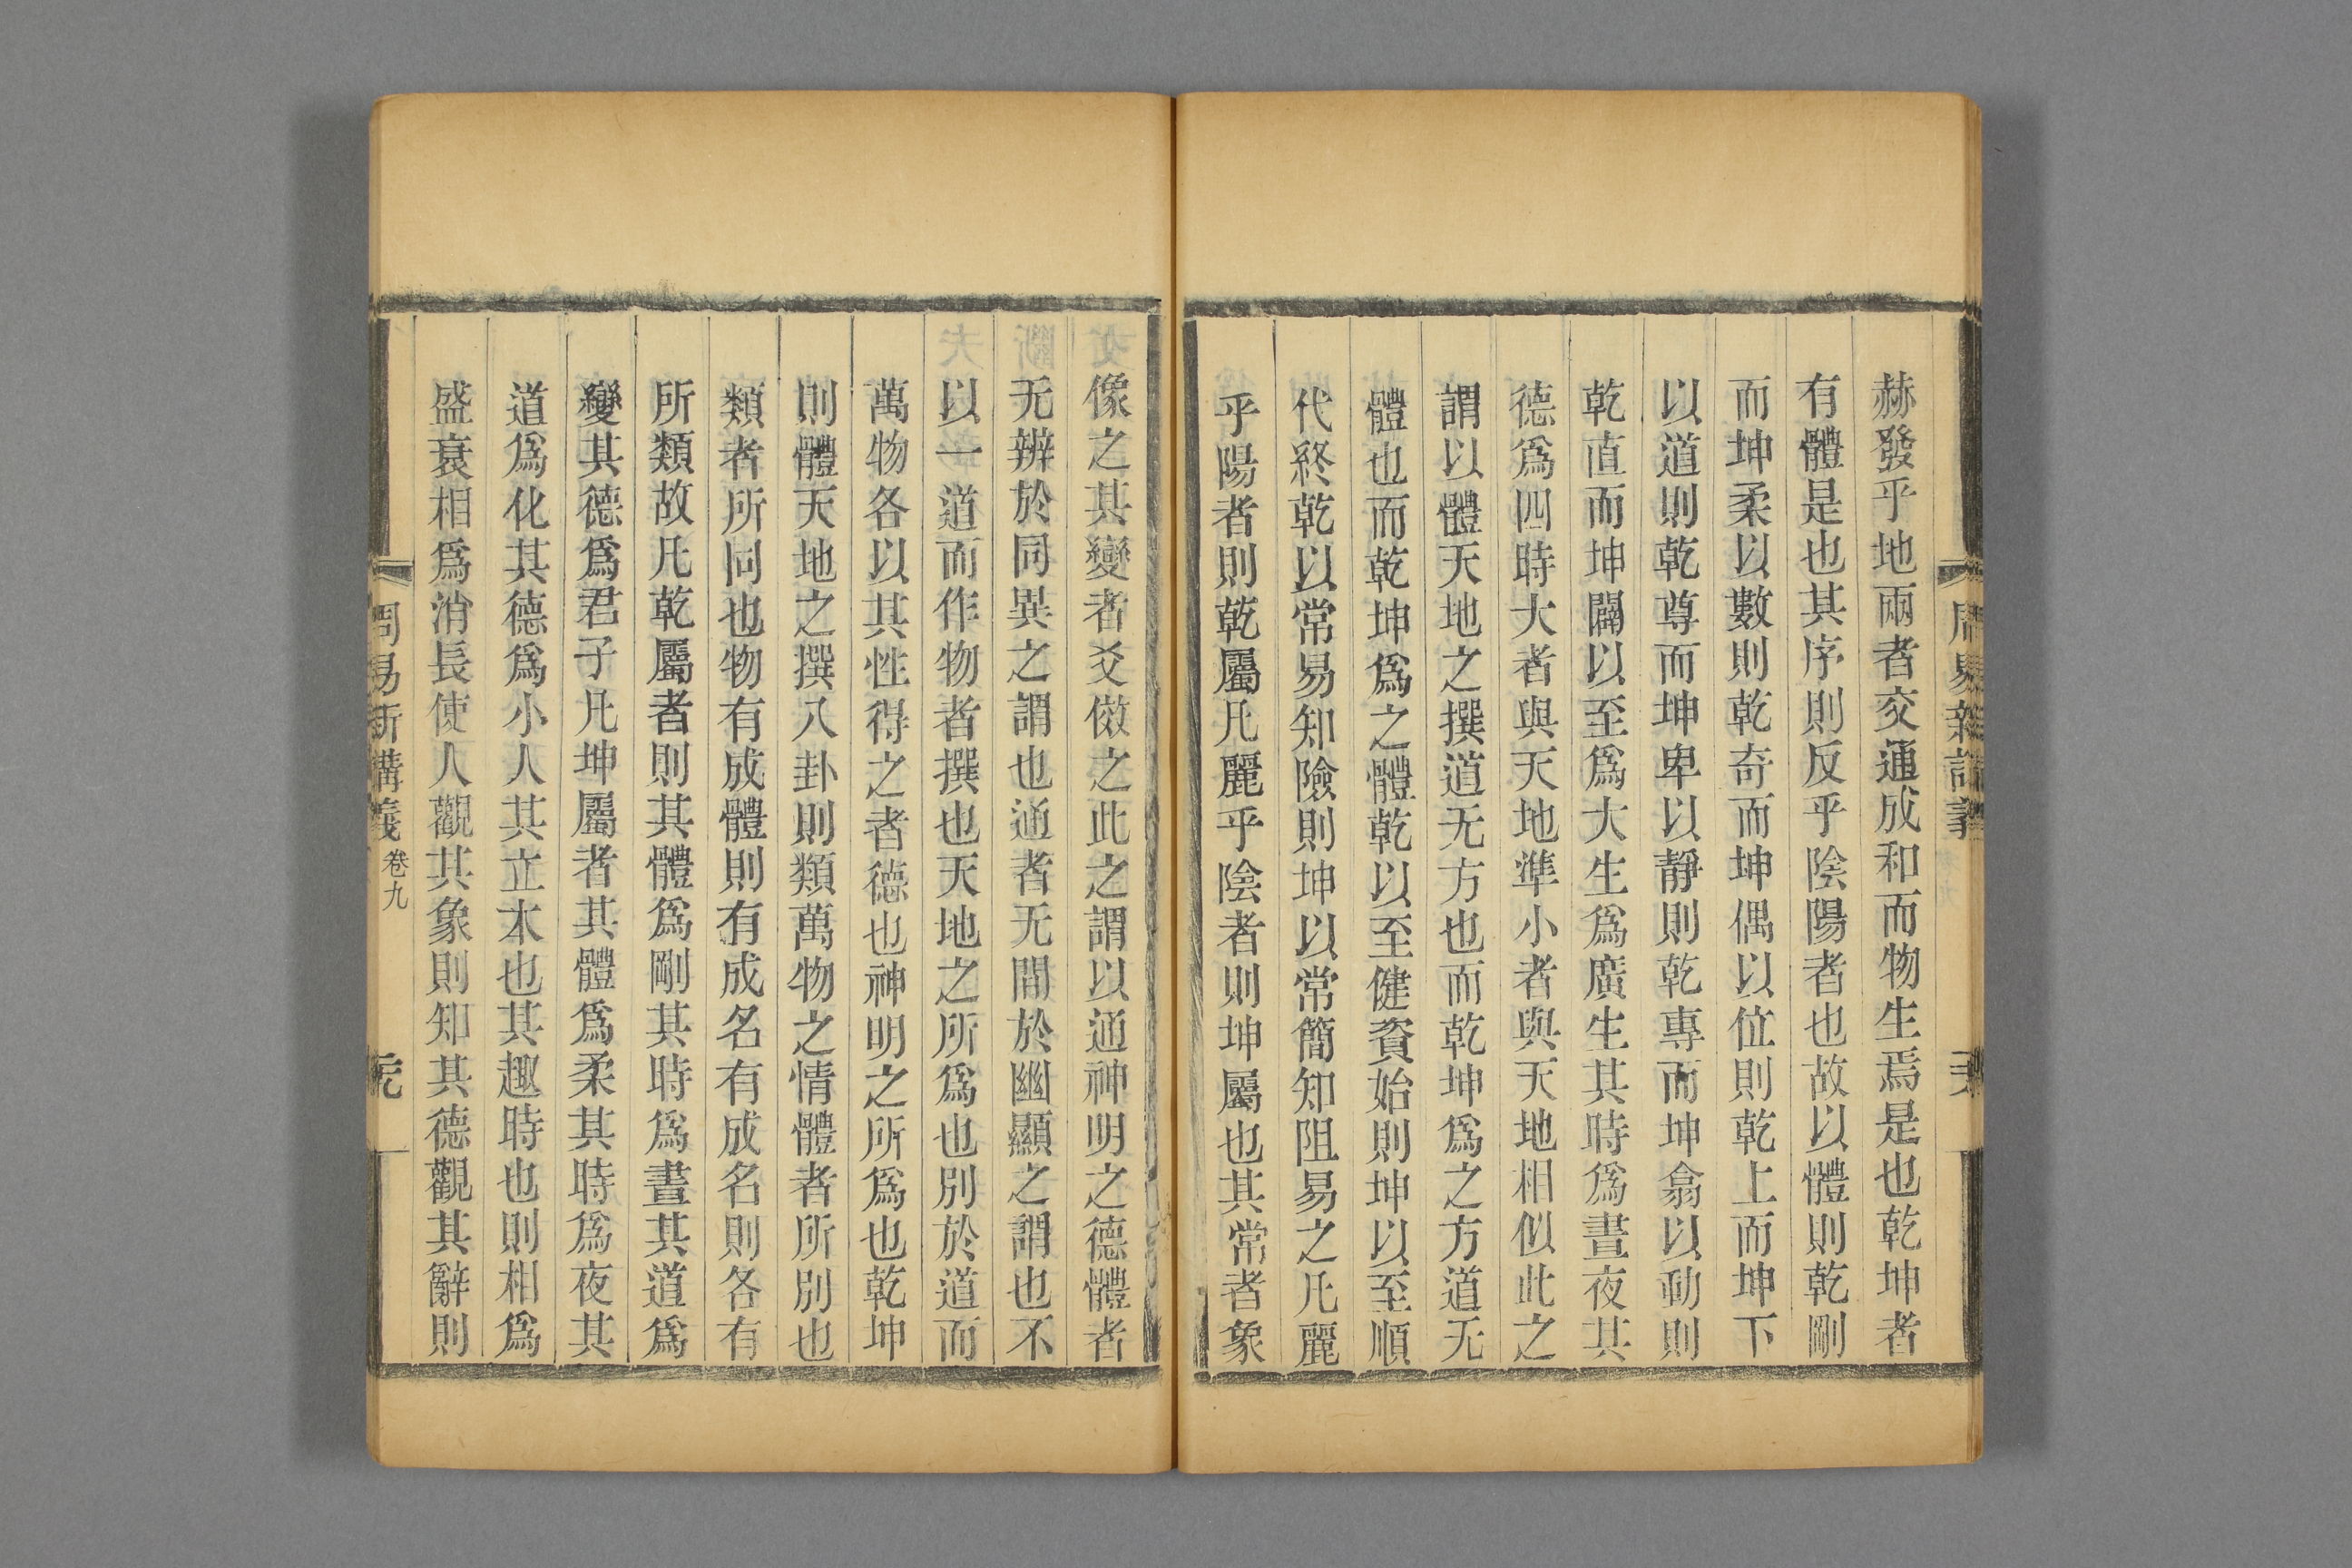 赫發乎地兩者交通成和而物生焉是也乾坤者
有體是也其序則反乎陰陽者也故以體則乾剛
而坤柔以數則乾奇而坤偶以位則乾上而坤下
以道則乾尊而坤卑以靜則乾專而坤翕以動則
乾直而坤闢以至爲大生爲廣生其時爲晝夜其
德爲四時大者與天地準小者與天地相似此之
謂以體天地之撰道无方也而乾坤爲之方道无
體也而乾坤爲之體乾以至健資始則坤以至順
代終乾以常易知險則坤以常簡知阻易之凡麗
乎陽者則乾屬凡麗乎陰者則坤屬也其常者象
像之其變者爻倣之此之謂以通神明之德體者
无辨於同異之謂也通者无間於幽顯之謂也不
以一道而作物者撰也天地之所爲也別於道而
萬物各以其性得之者德也神明之所爲也乾坤
則體天地之撰八卦則類萬物之情體者所別也
類者所同也物有成體則有成名有成名則各有
所類故凡乾屬者則其體爲剛其時爲晝其道爲
變其德爲君子凡坤屬者其體爲柔其時爲夜其
道爲化其德爲小人其立本也其趣時也則相爲
盛衰相爲消長使人觀其象則知其德觀其辭則
周易新講義 卷九